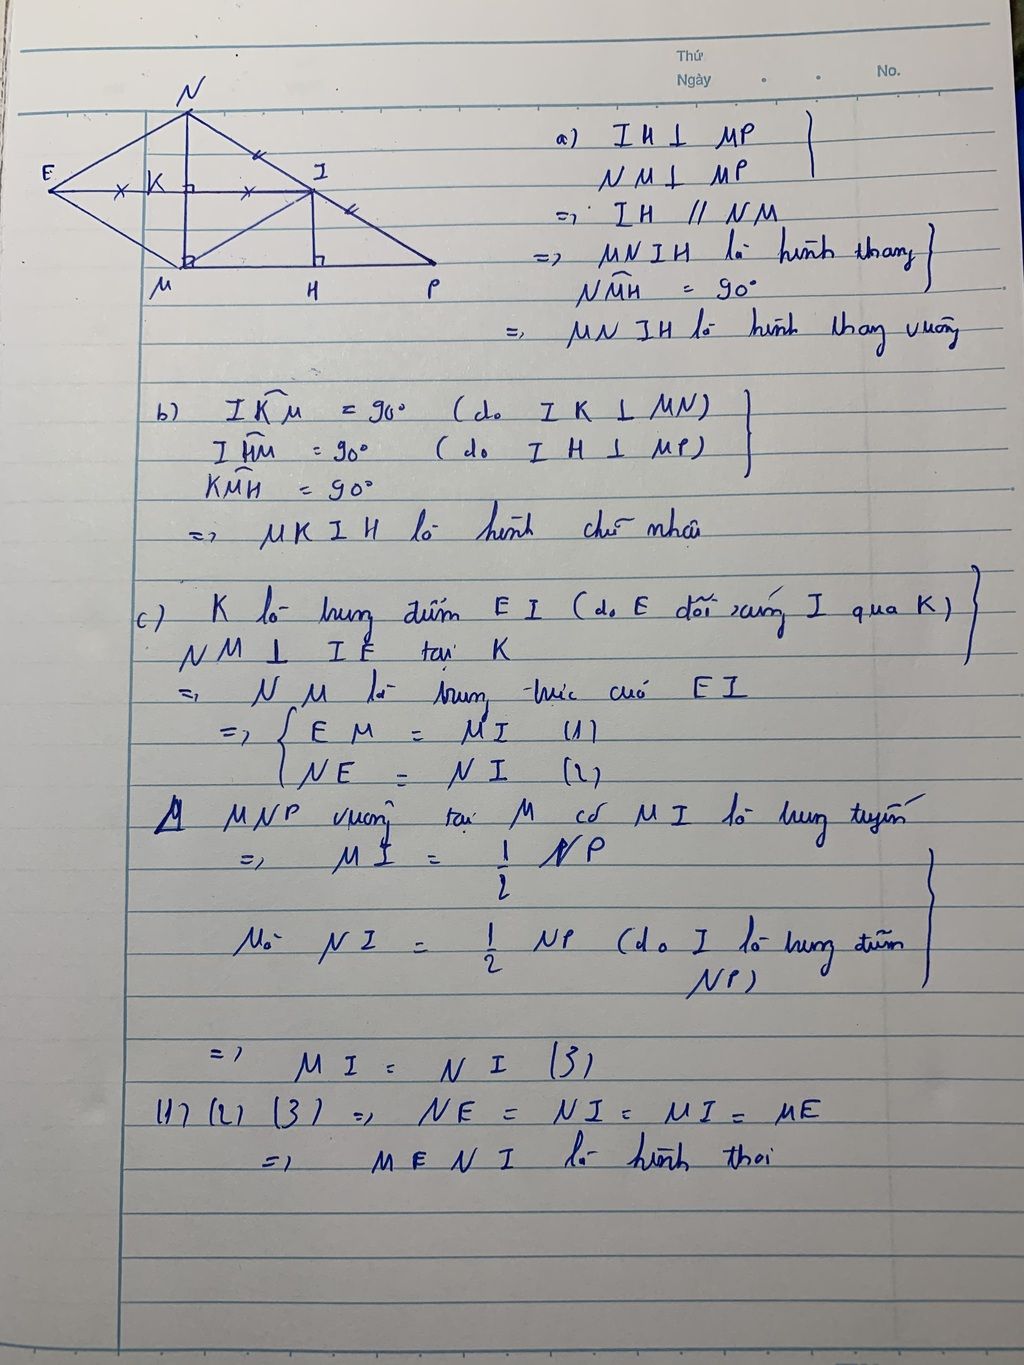 Thứ
Ngày
No.
N
E
K
I
M
H
P
a) IH ⊥ MP
NM ⊥ MP
=> IH // NM
=> MNIH là hình thang
NMH = 90°
=> MNIH là hình thang vuông
b) IKM = 90° (do IK ⊥ MN)
IHM = 90° (do IH ⊥ MP)
KMH = 90°
=> MKIH là hình chữ nhật
c) K là trung điểm EI (do E đối xứng I qua K)
NM ⊥ IE tại K
=> NM là trung trực của EI
=> { EM = MI (1)
NE = NI (2)
Δ MNP vuông tại M có MI là trung tuyến
=> MI = 1/2 NP
Mà NI = 1/2 NP (do I là trung điểm
NP)
=> MI = NI (3)
(1) (2) (3) => NE = NI = MI = ME
=> MENI là hình thoi